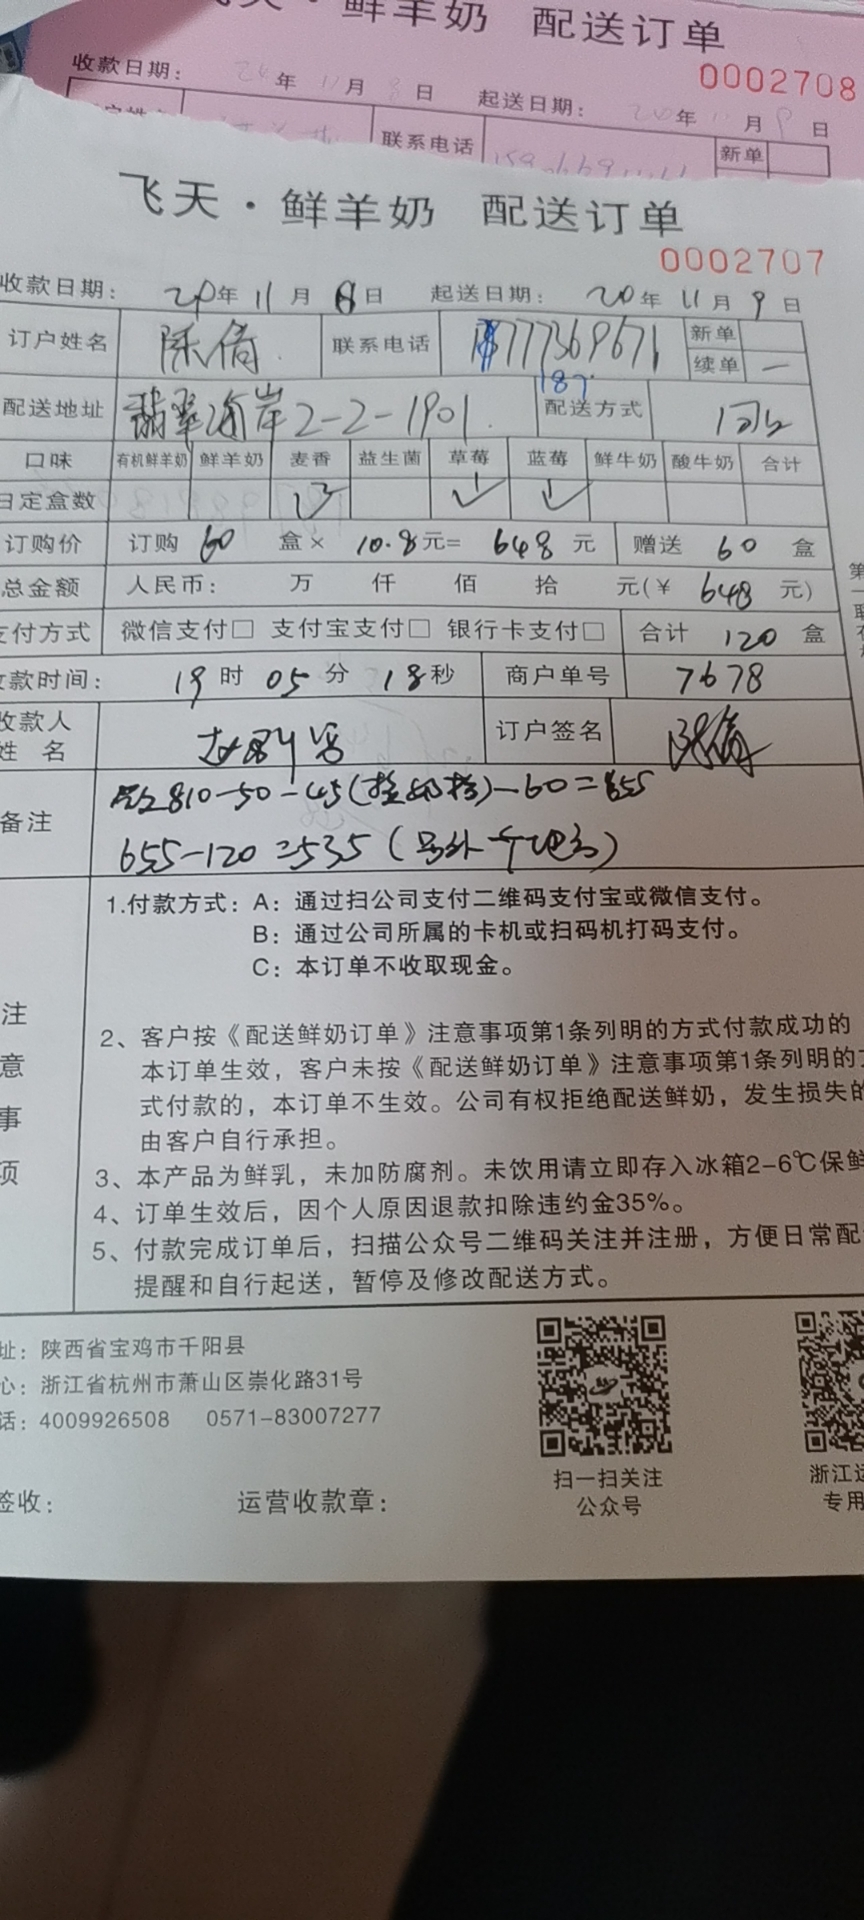 鲜羊奶 配送订单
0002708
收款日期： 年 11月 8日 起送日期： 20年 11月 9日
联系电话 新单
飞天·鲜羊奶 配送订单
0002707
收款日期： 20年 11月 8日 起送日期： 20年 11月 9日
订户姓名 陈倩 联系电话 777369671 新单
187 续单 一
配送地址 翡翠海岸2-2-1901. 配送方式
口味 有机鲜羊奶 鲜羊奶 麦香 益生菌 草莓 蓝莓 鲜牛奶 酸牛奶 合计
日定盒数
订购价 订购 60 盒× 10.8元= 648 元 赠送 60 盒
总金额 人民币： 万 仟 佰 拾 元(¥ 648 元)
支付方式 微信支付□ 支付宝支付□ 银行卡支付□ 合计 120 盒
收款时间： 19时 05分 18秒 商户单号 7678
收款人
姓 名 订户签名 陈倩
备注 810-50-45( )-60=655
655-120=535(另外 )
1.付款方式：A：通过扫公司支付二维码支付宝或微信支付。
B：通过公司所属的卡机或扫码机打码支付。
C：本订单不收取现金。
注意事项
2、客户按《配送鲜奶订单》注意事项第1条列明的方式付款成功的
本订单生效，客户未按《配送鲜奶订单》注意事项第1条列明的方
式付款的，本订单不生效。公司有权拒绝配送鲜奶，发生损失的
由客户自行承担。
3、本产品为鲜乳，未加防腐剂。未饮用请立即存入冰箱2-6℃保鲜
4、订单生效后，因个人原因退款扣除违约金35%。
5、付款完成订单后，扫描公众号二维码关注并注册，方便日常配
提醒和自行起送，暂停及修改配送方式。
址：陕西省宝鸡市千阳县
心：浙江省杭州市萧山区崇化路31号
话：4009926508 0571-83007277
扫一扫关注
公众号
浙江运
专用
签收： 运营收款章：